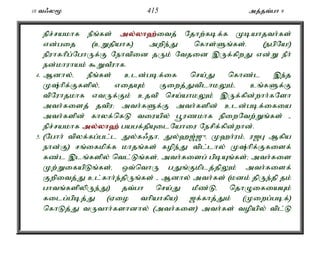 10 வஃலமூ 415 அத்தவ்பா 9
நிச்சயமாக நீங்கள் அல்லாஹ்வைத் தோற்கடிக்க முடியாதவர்கள்
என்பதை (உறுதியாக) அறிந்து கொள்ளுங்கள். (நபியே)
நிராகரிப்போருக்கு நோவினை தரும் வேதனை இருக்கிறது என்று நீர்
நன்மாராயம் கூறுவீராக.
4. ஆனால், நீங்கள் உடன்படிக்கை செய்து கொண்ட இந்த
முஷ்ரிக்குகளில், எதையும் குறைத்துவிடாமலும், உங்களுக்கு
விரோதமாக எவருக்கும் உதவி செய்யாமலும் இருக்கின்றார்களோ
அவர்களைத் தவிர; அவர்களுக்கு அவர்களின் உடன்படிக்கையை
அவர்களின் காலக்கெடு வரையில் பூரணமாக நிறைவேற்றுங்கள் -
நிச்சயமாக அல்லாஹ் பயபக்தியுடையோரை நேசிக்கின்றான்.
5. (போர் விலக்கப்பட்ட துல்கஃதா, துல்ஹஜ்ஜு, முஹர்ரம், ரஜபு ஆகிய
நான்கு) சங்கைமிக்க மாதங்கள் கழிந்து விட்டால் முஷ்ரிக்குகளைக்
கண்ட இடங்களில் வெட்டுங்கள், அவர்களைப் பிடியுங்கள்; அவர்களை
முற்றுகையிடுங்கள், ஒவ்வொரு பதுங்குமிடத்திலும் அவர்களைக்
குறிவைத்து உட்கார்ந்திருங்கள் - ஆனால் அவர்கள் (மனம் திருந்தி தம்
பாவங்களிலிருந்து) தவ்பா செய்து மீண்டு, தொழுகையையும்
கடைப்பிடித்து (ஏழை வரியாகிய) ஜக்காத்தும் (முறைப்படிக்)
கொடுத்து வருவார்களானால் (அவர்களை) அவர்கள் வழியில் விட்டு